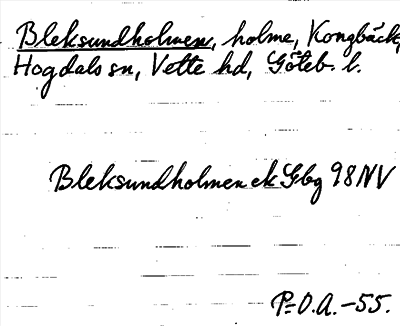 Bleksundholmen, holme, Kongbäck,
Hogdals sn, Vette hd, Göteb. l.
Bleksundholmen ek Gbg 98 NV
P-O.A. -55.